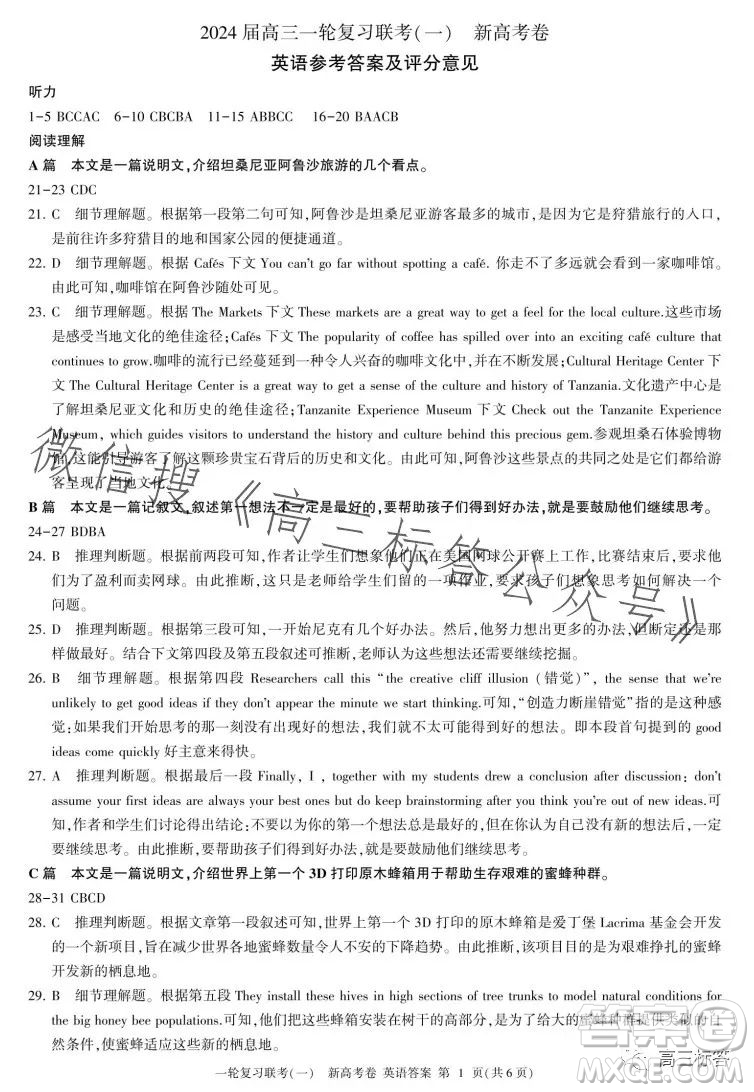 2024 届高三一轮复习联考(一)　新高考卷
英语参考答案及评分意见
听力
1-5 BCCAC　6-10 CBCBA　11-15 ABBCC　16-20 BAACB
阅读理解
A 篇　本文是一篇说明文,介绍坦桑尼亚阿鲁沙旅游的几个看点。
21-23 CDC
21. C　细节理解题。根据第一段第二句可知,阿鲁沙是坦桑尼亚游客最多的城市,是因为它是狩猎旅行的入口,
是前往许多狩猎目的地和国家公园的便捷通道。
22. D　细节理解题。根据 Cafés 下文 You can't go far without spotting a café. 你走不了多远就会看到一家咖啡馆。
由此可知,咖啡馆在阿鲁沙随处可见。
23. C　细节理解题。根据 The Markets 下文 These markets are a great way to get a feel for the local culture.这些市场
是感受当地文化的绝佳途径;Cafés 下文 The popularity of coffee has spilled over into an exciting café culture that
continues to grow.咖啡的流行已经蔓延到一种令人兴奋的咖啡文化中,并在继续发展;Cultural Heritage Center 下
文 The Cultural Heritage Center is a great way to get a sense of the culture and history of Tanzania.文化遗产中心是
了解坦桑尼亚文化和历史的绝佳途径;Tanzanite Experience Museum 下文 Check out the Tanzanite Experience
Museum, which guides visitors to understand the history and culture behind this precious gem.参观坦桑石体验博物
馆,这能引导游客了解这颗珍贵宝石背后的历史和文化。由此可知,阿鲁沙这些景点的共同之处是它们都让游
客呈现了当地文化。
B 篇　本文是一篇记叙文,叙述第一想法不一定是最好的,要帮助孩子们得到好办法,就是要鼓励他们继续思考。
24-27 BDBA
24. B　推理判断题。根据前两段可知,作者让学生们想象他们正在美国网球公开赛上工作,比赛结束后,要求他
们为了盈利而卖网球。由此推断,这只是老师给学生们留的一项作业,要求孩子们想象思考如何解决一个
问题。
25. D　推理判断题。根据第三段可知,一开始尼克有几个好办法。然后,他努力想出更多的办法,但断定还是那
样做最好。结合下文第四段及第五段叙述可推断,老师认为这些想法还需要继续挖掘。
26. B　细节理解题。根据第四段 Researchers call this “the creative cliff illusion (错觉)”, the sense that we're
unlikely to get good ideas if they don't appear the minute we start thinking.可知,“创造力断崖错觉”指的是这种感
觉:如果我们开始思考的那一刻没有出现好的想法,我们就不太可能有好的想法。即本段首句提到的 good
ideas come quickly 好主意来得快。
27. A　推理判断题。根据最后一段 Finally, I , together with my students drew a conclusion after discussion: don't
assume your first ideas are always your best ones but do keep brainstorming after you think you're out of new ideas.可
知,作者和学生们讨论得出结论:不要以为你的第一个想法总是最好的,但在你认为自己没有新的想法后,一定
要继续思考。由此可推断,要帮助孩子们得到好办法,就是要鼓励他们继续思考。
C 篇　本文是一篇说明文,介绍世界上第一个 3D 打印原木蜂箱用于帮助生存艰难的蜜蜂种群。
28-31 CBCD
28. C　推理判断题。根据文章第一段叙述可知,世界上第一个 3D 打印的原木蜂箱是爱丁堡 Lacrima 基金会开发
的一个新项目,旨在减少世界各地蜜蜂数量令人不安的下降趋势。由此可推断,该项目是为艰难挣扎的蜜蜂
开发新的栖息地。
29. B　细节理解题。根据第五段 They install these hives in high sections of tree trunks to model natural conditions for
the big honey bee populations.可知,他们把这些蜂箱安装在树干的高部分,是为了给大的蜜蜂种群提供类似的自
然条件,使蜜蜂适应新的栖息地。
一轮复习联考(一)　新高考卷　英语答案　第 1 页(共 6 页)
微信搜《高三标答公众号》
高三标答
MXQE.COM